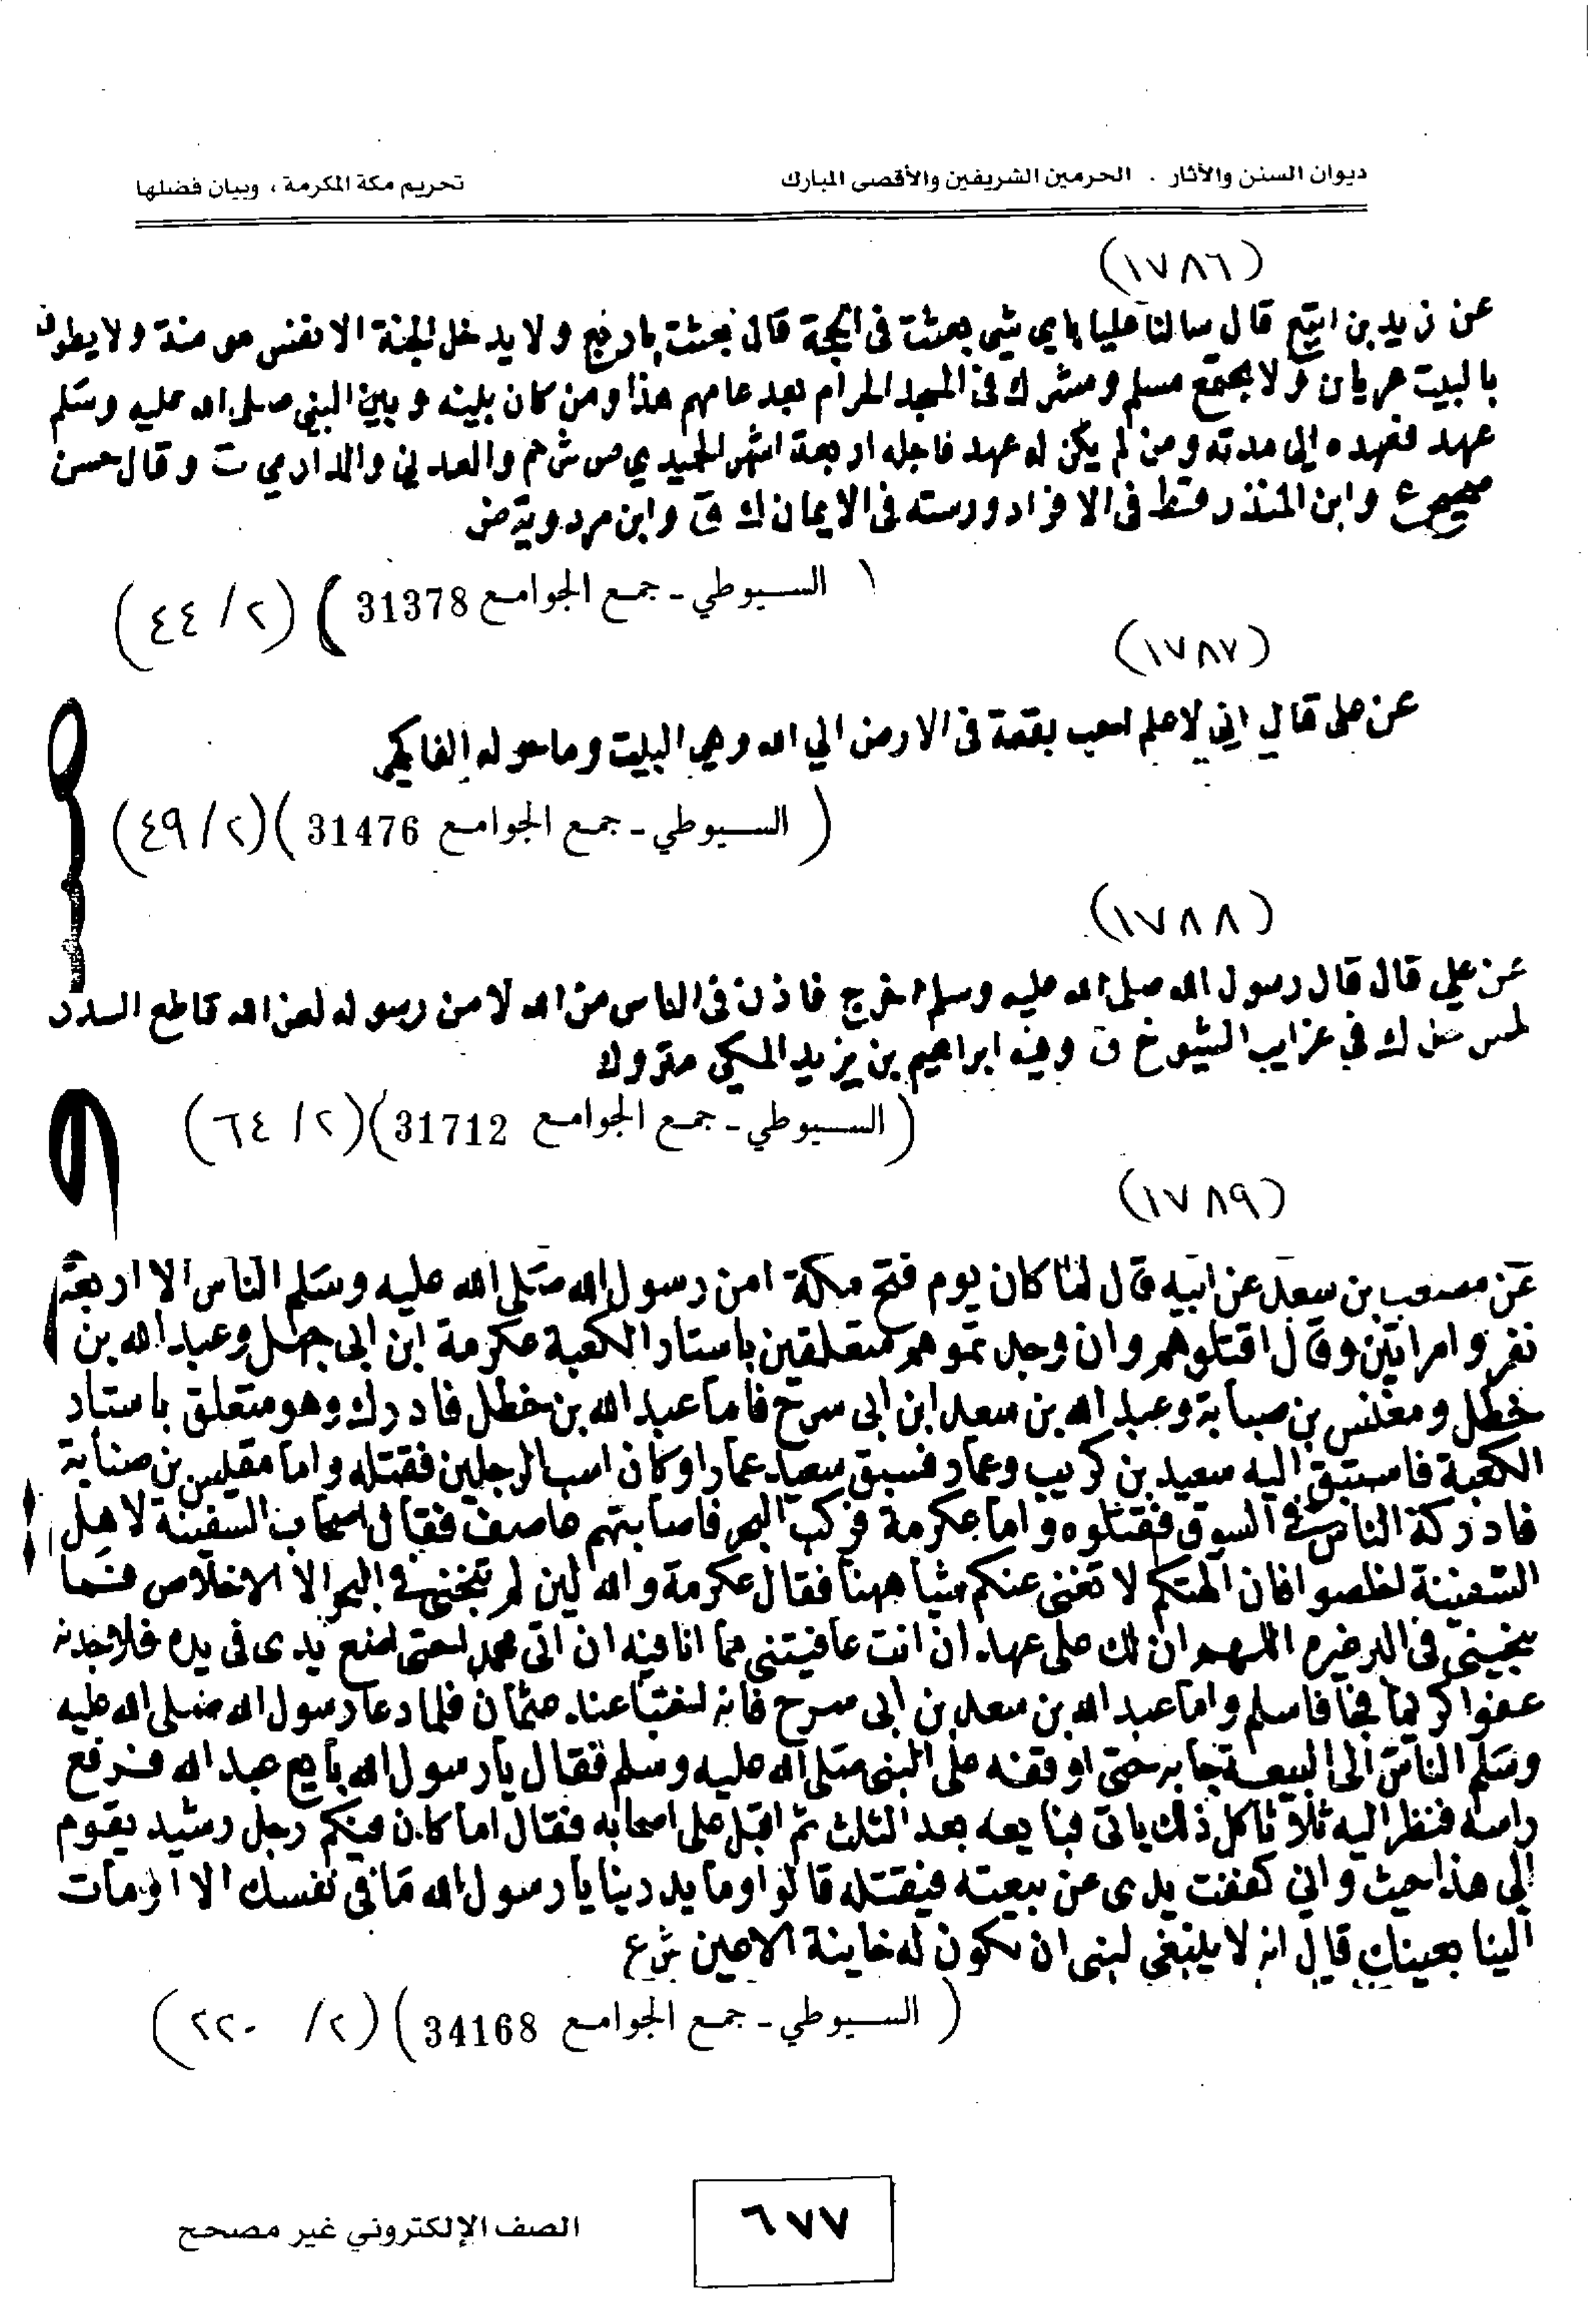 ديوان السنن والأثار . الحرمين الشريفين والأقصى المبارك
تحريم مكة المكرمة ، وبيان فضلها
(١٧٨٦)
عن زيد بن اتيع قال سالنا عليا باي شي بعثت فى الحجة قال بعثت باربع ولا يدخل الجنة الا نفس مومنة ولا يطوف
بالبيت عريان ولا يجمع مسلم ومشرك فى المسجد الحرام بعد عامهم هذا ومن كان بينه وبين النبي صلى الله عليه وسلم
عهد فعهده الى مدته ومن لم يكن له عهد فاجله اربعة اشهر الحميدي ص ش حم والعدني والدارمي ت وقال حسن
صحيح ع وابن المنذر قط فى الافراد ورسته فى الايمان ك ق وابن مردوية ض
( السيوطي - جمع الجوامع 31378 ) (٢/ ٤٤)
(١٧٨٧)
عن على قال اني لاعلم احب بقعة فى الارض الي الله وهي البيت وما حوله الفاكهي
( السيوطي - جمع الجوامع 31476 ) (٢/ ٤٩)
(١٧٨٨)
عن علي قال قال رسول الله صلى الله عليه وسلم اخرج فاذن فى الناس من الله لا من رسوله لعن الله قاطع السدد
ك في غرايب الشيوخ ق وفيه ابراهيم بن يزيد المكي متروك
( السيوطي - جمع الجوامع 31712 ) (٢/ ٦٤)
(١٧٨٩)
عن مصعب بن سعد عن ابيه قال لما كان يوم فتح مكة امن رسول الله صلى الله عليه وسلم الناس الا اربعة
نفر وامراتين وقال اقتلوهم وان وجدتموهم متعلقين باستار الكعبة عكرمة ابن ابى جهل وعبد الله بن
خطل ومقيس بن صبابة وعبد الله بن سعد ابن ابى سرح فاما عبد الله بن خطل فادرك وهو متعلق باستار
الكعبة فاستبق اليه سعيد بن كريب وعمار فسبق سعيد عمارا وكان اسب الرجلين فقتله واما مقيس بن صنابة
فادركة الناس فى السوق فقتلوه واما عكرمة فركب البحر فاصابتهم عاصف فقال اصحاب السفينة لاهل
السفينة اخلصوا فان الهتكم لا تغنى عنكم شيا ههنا فقال عكرمة والله لين لم ينجنى فى البحر الا الاخلاص فما
ينجينى فى البر غيره اللهم ان لك على عهد ان انت عافيتنى مما انا فيه ان اتى محمدا حتى اضع يدى فى يده فلاجدنه
عفوا كريما فجا فاسلم واما عبد الله بن سعد بن ابى سرح فانه اختبا عند عثمان فلما دعا رسول الله صلى الله عليه
وسلم الناس الى البيعة جا به حتى اوقفه على النبى صلى الله عليه وسلم فقال يا رسول الله بايع عبد الله فرفع
راسه فنظر اليه ثلاثا كل ذلك يابى فبايعه بعد الثلث ثم اقبل على اصحابه فقال اما كان فيكم رجل رشيد يقوم
الى هذا حيث رانى كففت يدى عن بيعته فيقتله قالوا وما يدرينا يا رسول الله ما فى نفسك الا اومات
الينا بعينك قال انه لا ينبغى لنبى ان يكون له خاينة الاعين ش ع
( السيوطي - جمع الجوامع 34168 ) (٢/ ٢٢٠)
٦٧٧
الصف الإلكتروني غير مصحح